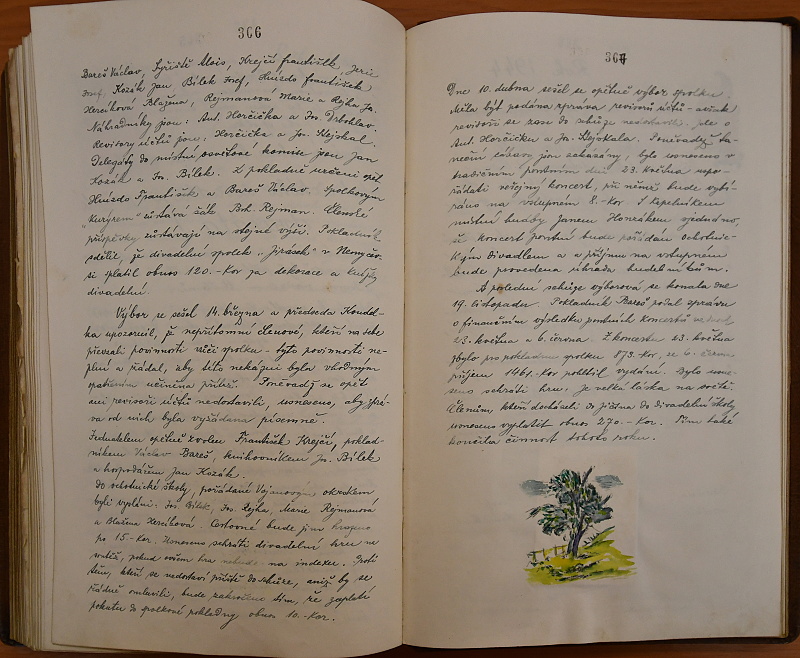 366
Bareš Václav, Syřiště Alois, Krejčí František, Jerie
Josef, Kozák Jan Bílek Josef, Hnízdo František
Hercíková Blažena, Rejmanová Marie a Rejha Jo.
Náhradníky jsou: Ant. Horčička a Jos. Drboslav.
Revisory účtů jsou: Horčička a Jos. Hejskal.
Delegáty do místní osvětové komise jsou Jan
Kozák a Jos. Bílek. Z pokladně určeni opět
Hnízdo František a Bareš Václav. Spolkovým
"kurýrem" zůstává žák Boh. Rejman. Členské
příspěvky zůstávají na stejné výši. Pokladník
sdělil, že divadelní spolek "Jirásek" v Nemyčev-
si splatil obnos 120.-Kor za dekorace a knížky
divadelní.
Výbor se sešel 14. března a předseda Koudel-
ka upozornil, že nepřítomní členové, kteří na sebe
převzali povinnosti vůči spolku - tyto povinnosti ne-
plní a žádal, aby této nekázni bylo vhodným
opatřením učiněna přítrž. Poněvadž se opět
ani revisoři účtů nedostavili, usneseno, aby zprá-
va od nich byla vyžádána písemně.
Jednatelem opětně zvolen František Krejčí, poklad-
níkem Václav Bareš, knihovníkem Jos. Bílek
a hospodářem Jan Kozák.
do ochotnické školy, pořádané Vojanovým okrskem
byli vysláni: Jos. Bílek, Jos. Rejha, Marie Rejmanová
a Blažena Hercíková. Cestovné bude jim hrazeno
po 15.-Kor. Usneseno sehráti divadelní hru na
pokud ovšem hra nebude na indexu. Proti
těm, kteří se nedostaví příště do schůze, aniž by se
řádně omluvili, bude zakročeno tím, že zaplatí
pokutu do spolkové pokladny obnos 10.-Kor.
367
Dne 10. dubna sešel se opětně výbor spolku.
Měla být podána zpráva revisorů účtů - avšak
revisoři se zase do schůze nedostavili. Jde o
Ant. Horčičku a Jos. Hejskala. Poněvadž ta-
neční zábavy jsou zakázány, bylo usneseno v
tradičním pouťním dnu 23. května uspo-
řádati veřejný koncert, při němž bude vybí-
ráno na vstupném 8.-Kor. S kapelníkem
místní hudby Janem Honzákem sjednáno,
že koncert pouťní bude pořádán ochotnic-
kým divadlem a z příjmu na vstupném
bude provedena úhrada hudebníkům.
A poslední schůze výborová se konala dne
19. listopadu. Pokladník Bareš podal zprávu
o finančním výsledku pouťních koncertů
23. května a 6. června. Z koncertu 23. května
zbylo pro pokladnu spolku 873.-Kor, ze 6. června
příjem 1461.-Kor pohltil vydání. Bylo usne-
seno sehráti hru: Je velká láska na světě.
Členům, kteří docházeli do Jičína do divadelní školy,
usneseno vyplatit obnos 270.-Kor. Tím také
končila činnost tohoto roku.